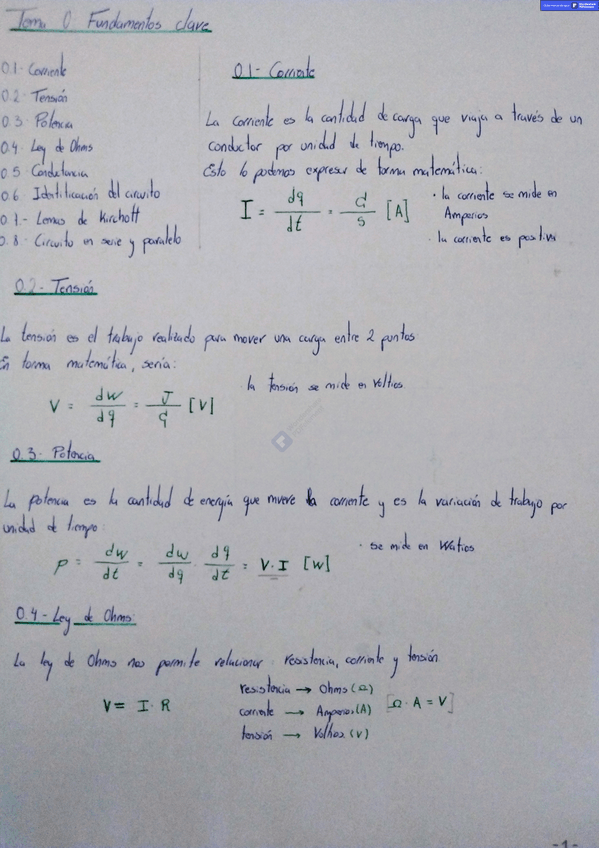 Tema 0 Fundamentos clave
0.1- Corriente
0.2- Tensión
0.3- Potencia
0.4- Ley de Ohms
0.5- Conductancia
0.6- Identificación del circuito
0.7- Lemas de Kirchoff
0.8- Circuito en serie y paralelo
0.1- Corriente
La corriente es la cantidad de carga que viaja a través de un
conductor por unidad de tiempo.
Esto lo podemos expresar de forma matemática:
I = dq/dt = C/s [A]
· la corriente se mide en
Amperios
· la corriente es positiva
0.2- Tensión
La tensión es el trabajo realizado para mover una carga entre 2 puntos
En forma matemática, sería:
V = dw/dq = J/C [V]
la tensión se mide en Voltios
0.3- Potencia
La potencia es la cantidad de energía que mueve la corriente y es la variación de trabajo por
unidad de tiempo:
P = dw/dt = dw/dq · dq/dt = V·I [W]
· se mide en Watios
0.4- Ley de Ohms:
La ley de Ohms nos permite relacionar: resistencia, corriente y tensión
V = I·R
resistencia → Ohms (Ω)
corriente → Amperios (A)
tensión → Voltios (V)
[Ω·A = V]
-1-